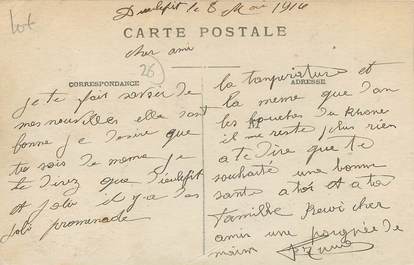 Dieulefit le 8 Mai 1916
CARTE POSTALE
cher ami
lot
26
CORRESPONDANCE
ADRESSE
je te fait savoir de
mes nouvelles elle sont
bonne je desire que
toi sois de meme je
te direz que dieulefit
et joli il y a des
joli promenade
la tanperature et
la meme que dan
les bouches du Rhone
il me reste plus rien
a te dire que te
souhaité une bonne
santé a toi et a ta
famille
cher
ami une poignée de
main